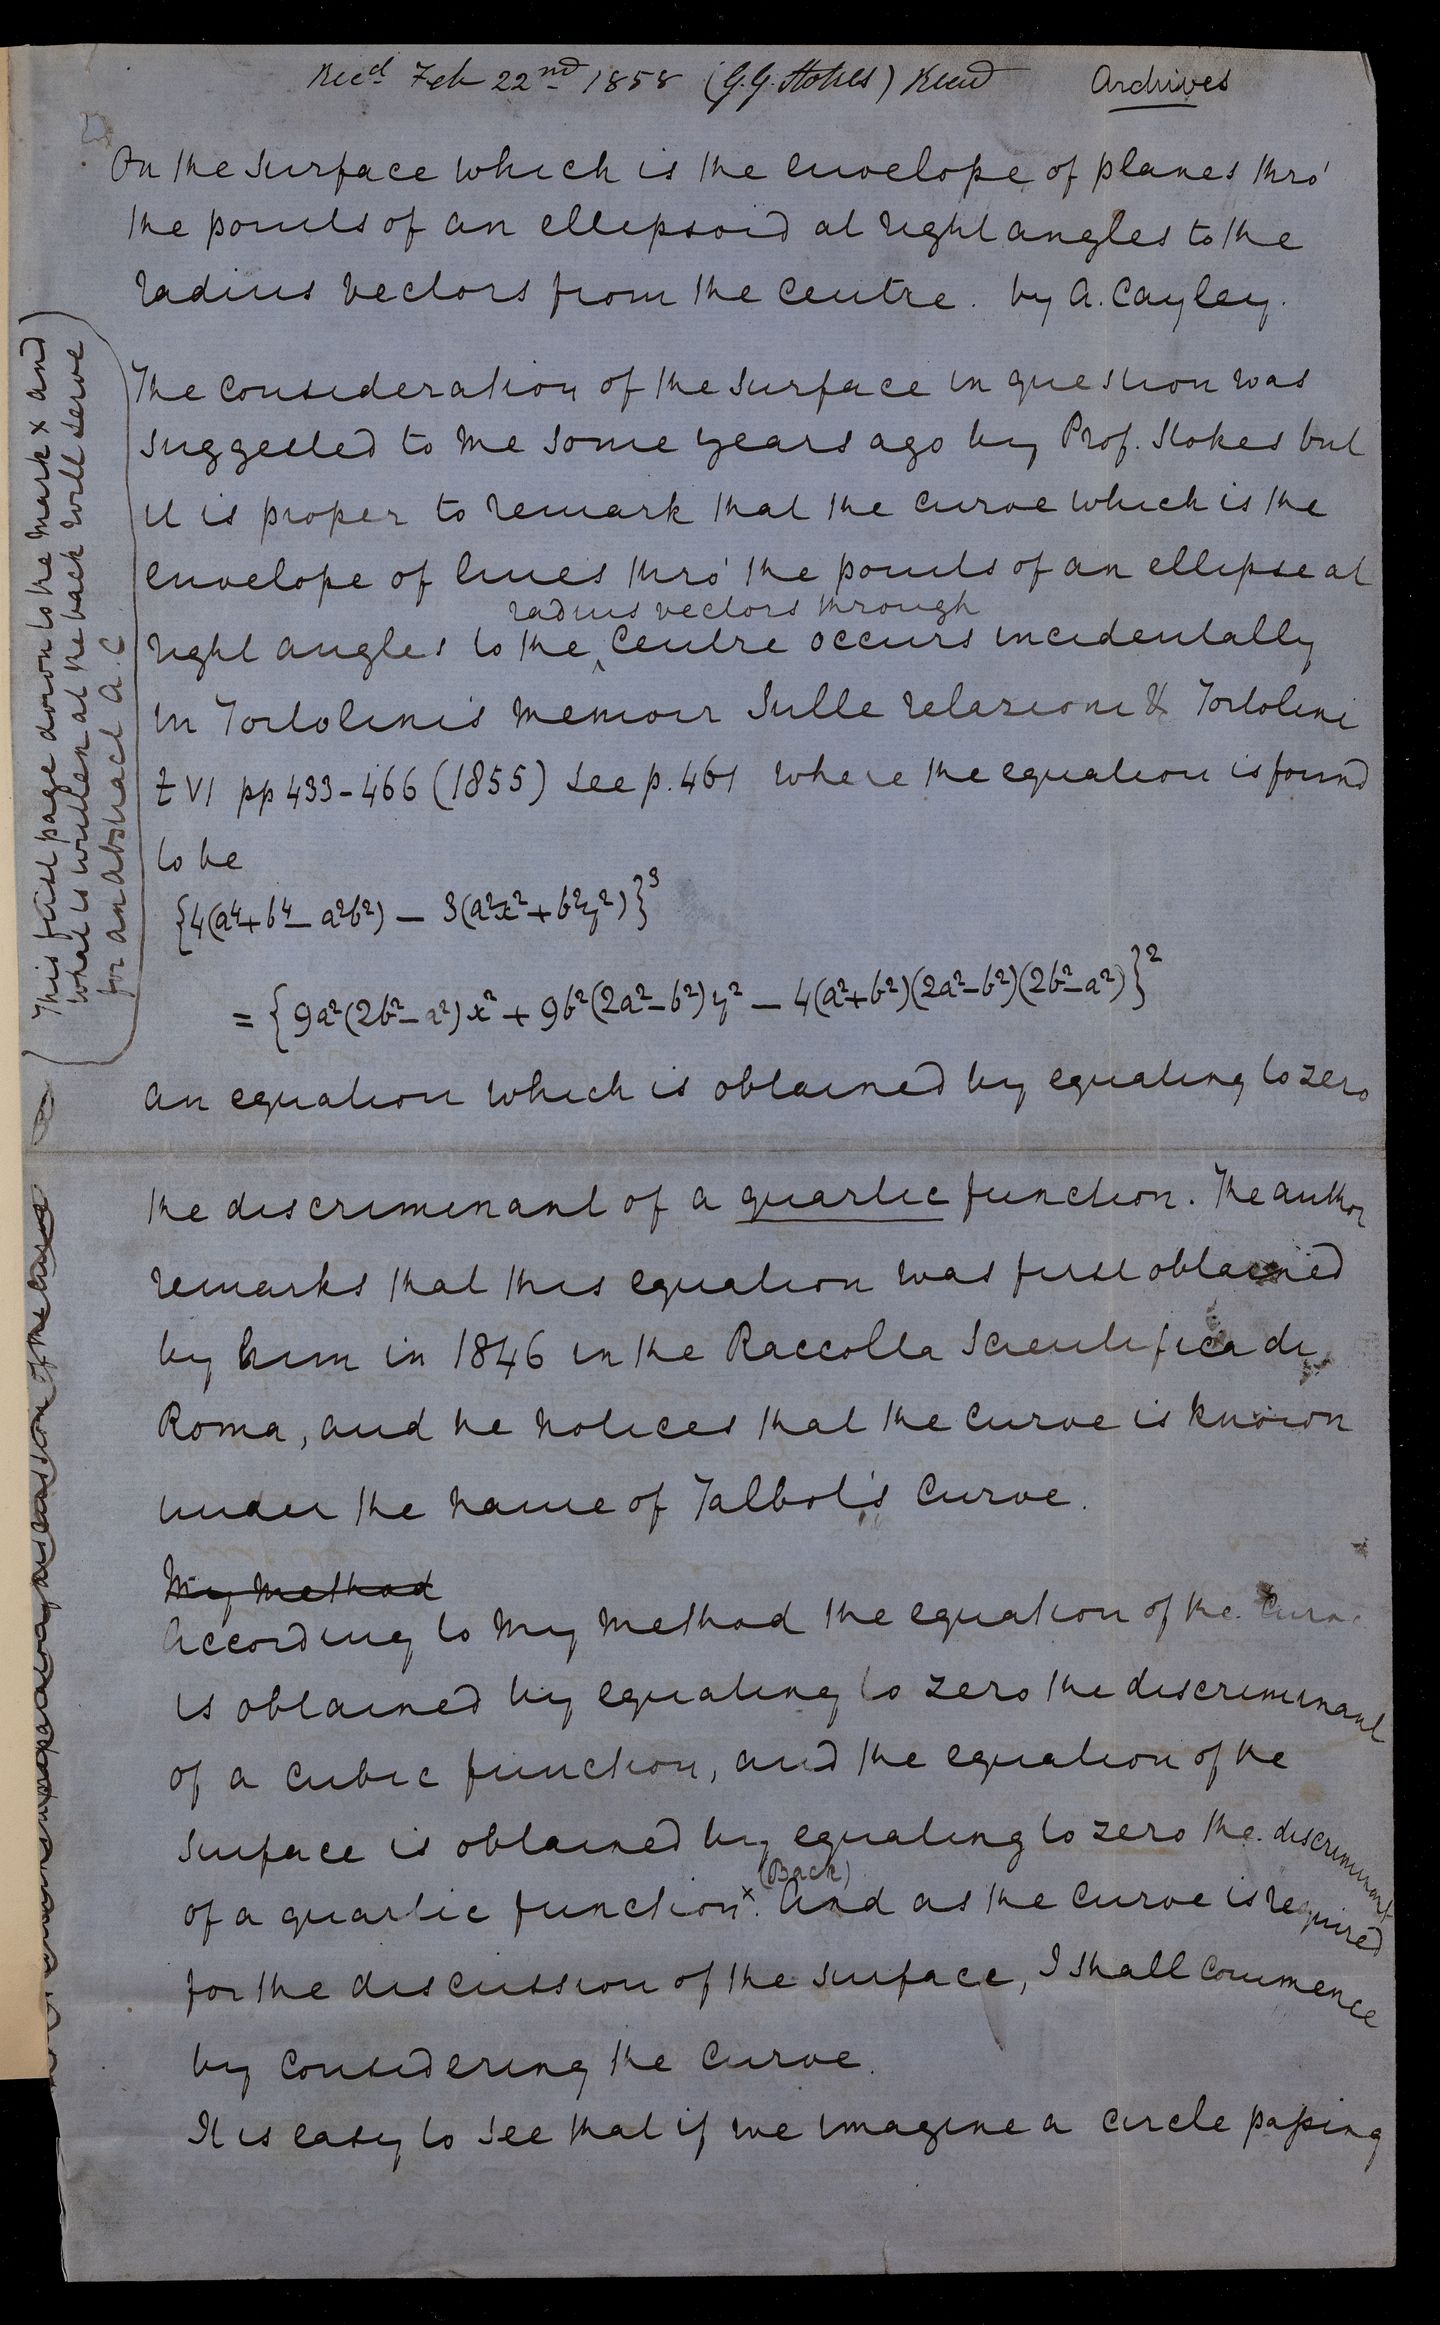 Recd Feb 22nd 1858 (G.G. Stokes) Read Archives
On the surface which is the envelope of planes thro'
the points of an ellipsoid at right angles to the
radius vectors from the centre. by A. Cayley.
The consideration of the surface in question was
suggested to me some years ago by Prof. Stokes but
it is proper to remark that the curve which is the
envelope of lines thro' the points of an ellipse at
radius vectors through
right angles to the ‸ centre occurs incidentally
in Tortolini's memoir Sulle relazioni & Tortolini
t VI pp 433-466 (1855) see p. 461 where the equation is found
to be
{4(a⁴+b⁴-a²b²) - 3(a²x²+b²y²)}³
= {9a²(2b²-a²)x² + 9b²(2a²-b²)y² - 4(a²+b²)(2a²-b²)(2b²-a²)}²
an equation which is obtained by equating to zero
the discriminant of a quartic function. The author
remarks that this equation was first obtained
by him in 1846 in the Raccolta Scientifica di
Roma, and he notices that the curve is known
under the name of Talbot's Curve.
My method
According to my method the equation of the curve
is obtained by equating to zero the discriminant
of a cubic function, and the equation of the
surface is obtained by equating to zero the discriminant
(Back)
of a quartic function x. And as the curve is required
for the discussion of the surface, I shall commence
by considering the curve.
It is easy to see that if we imagine a circle passing
This first page down to the mark x and
what is written at the back will serve
for an abstract A.C
of the curve